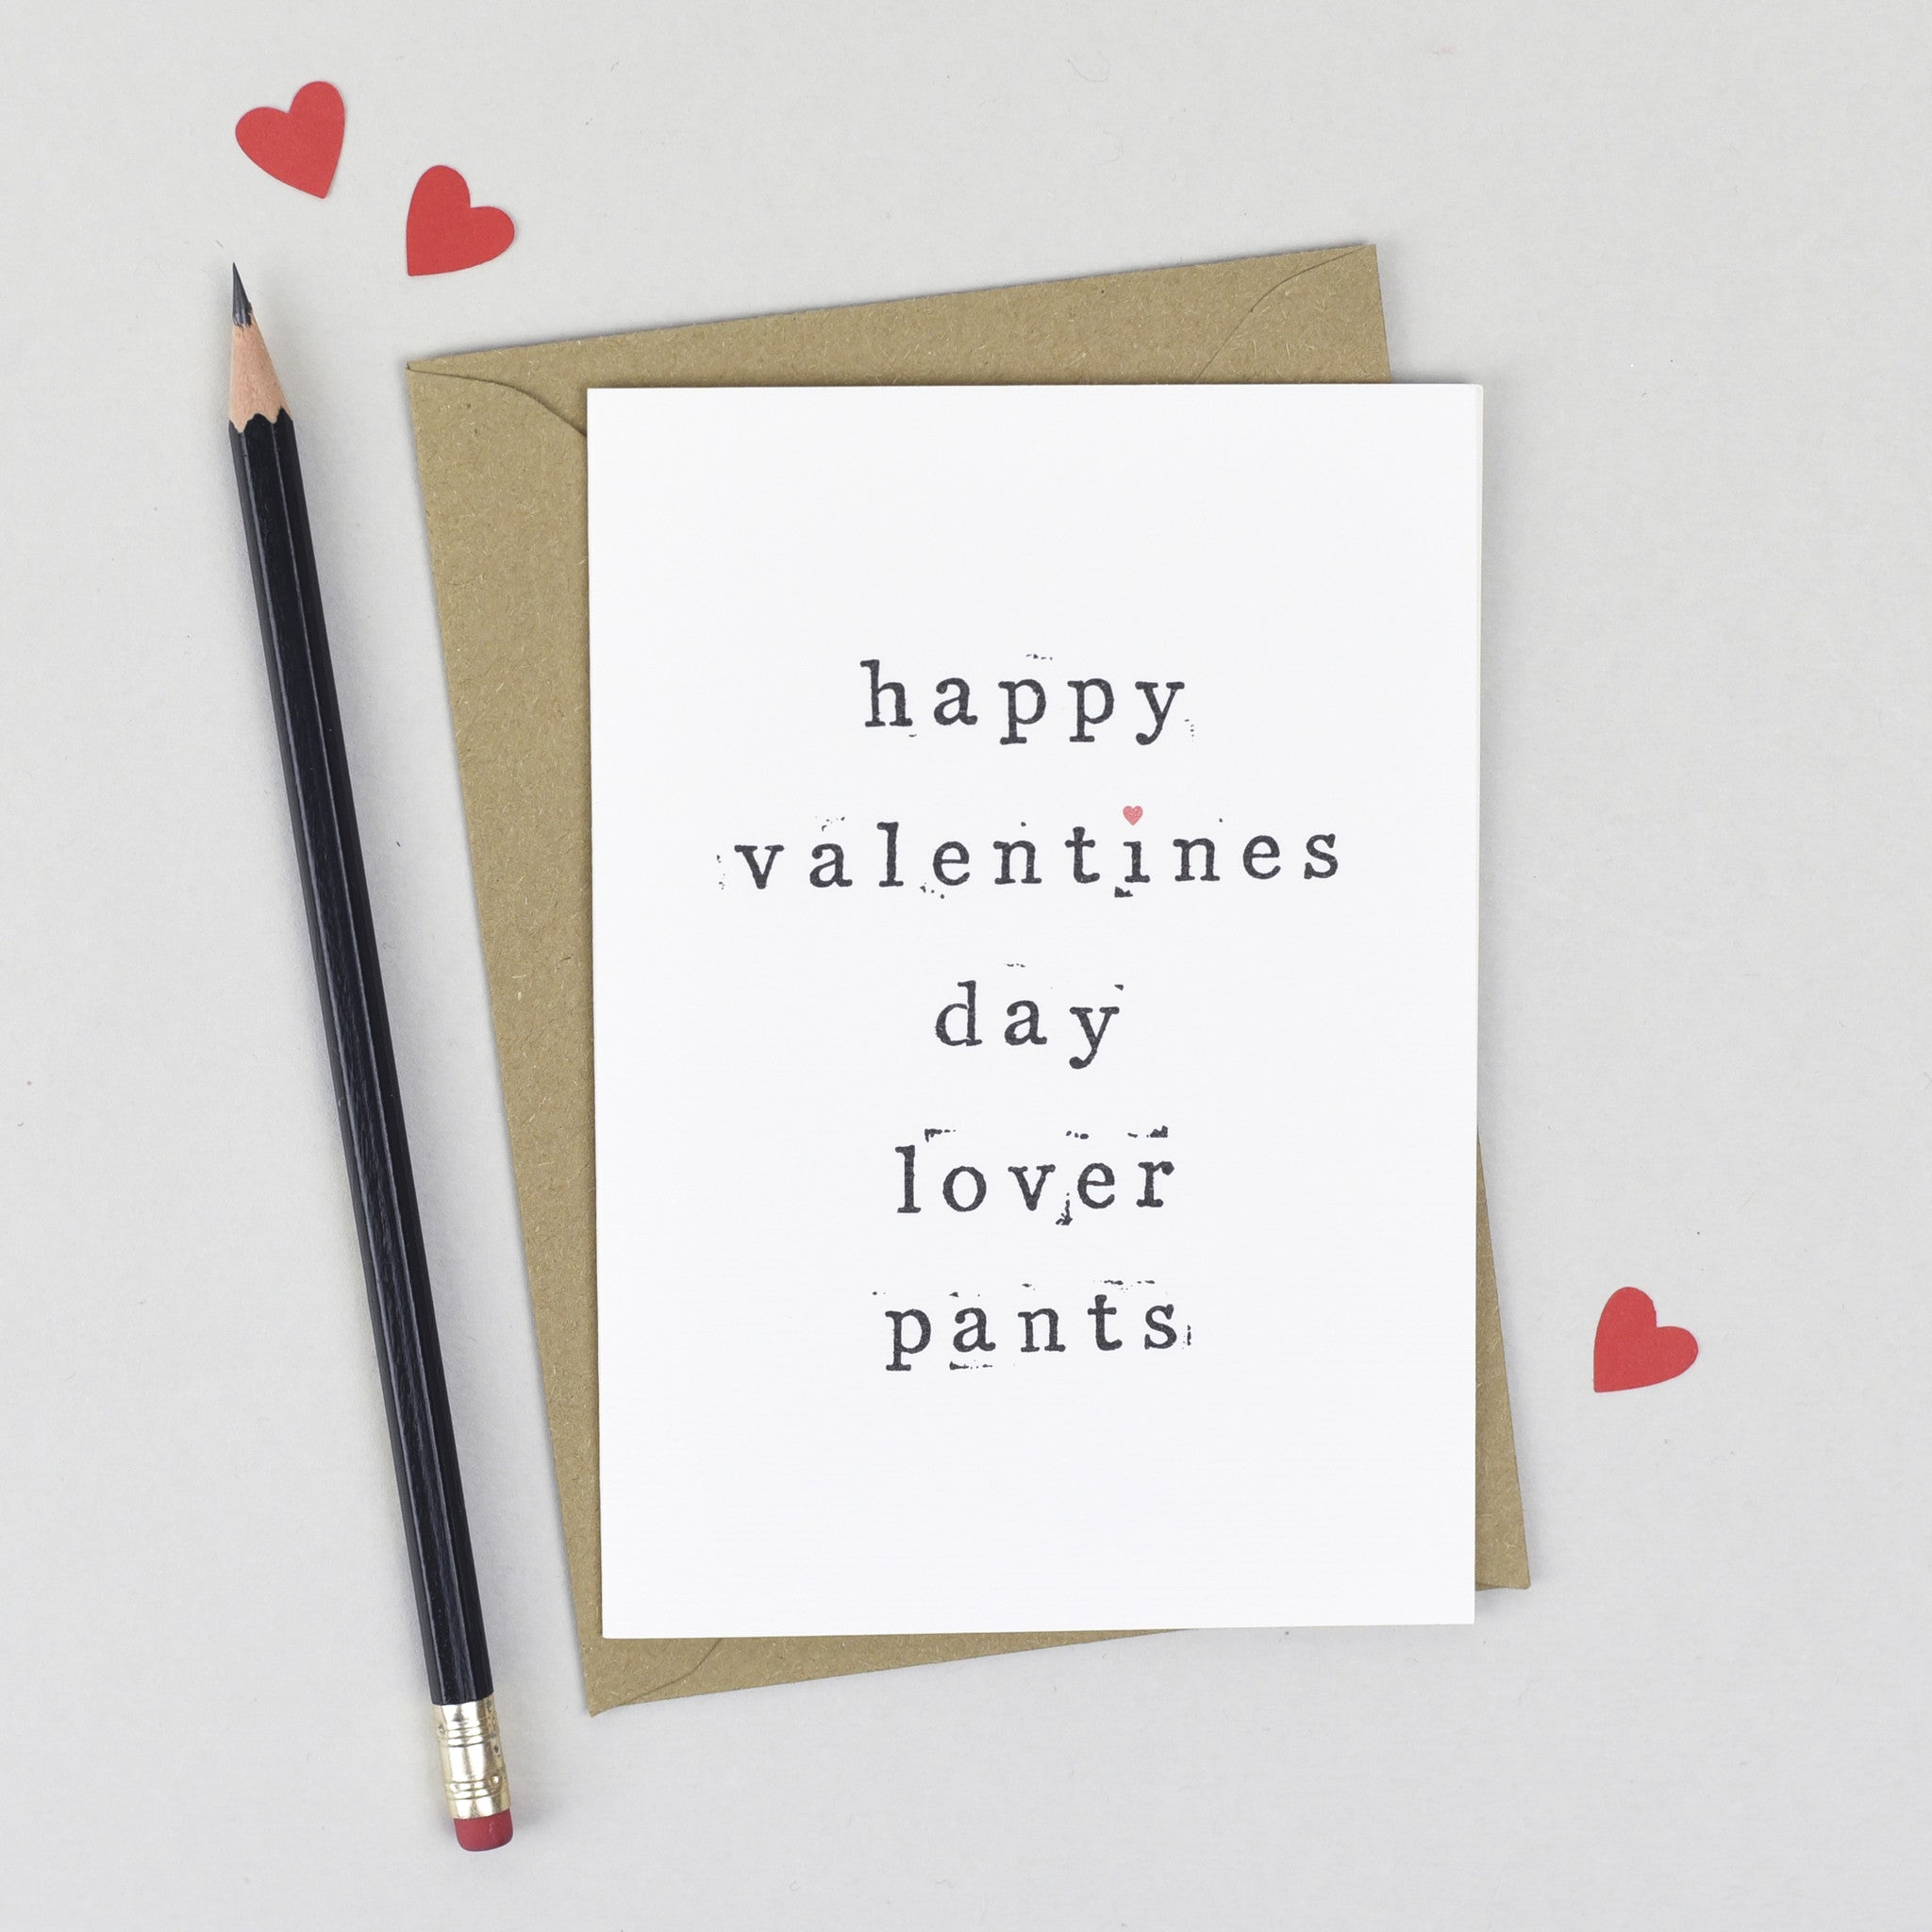 happy
valentines
day
lover
pants